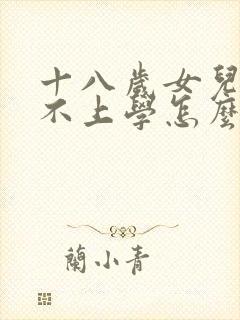 十八歲女兒
不上學怎麼
蘭小青